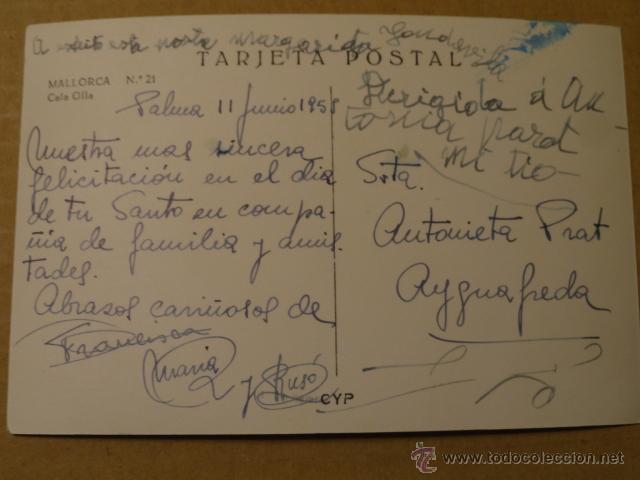 A escrito esta posta margarita
TARJETA POSTAL
MALLORCA N.º 21
Cala Olla
Palma 11 Junio 1958
Nuestra mas sincera
felicitación en el dia
de tu Santo en compa-
ñia de familia y amis-
tades.
Abrazos cariñosos de
Francisca
Maria
y Rusó
Dirigida á An-
tonia part
mi tio
Srta.
Antonieta Prat
Ayguafreda
CYP
www.todocoleccion.net